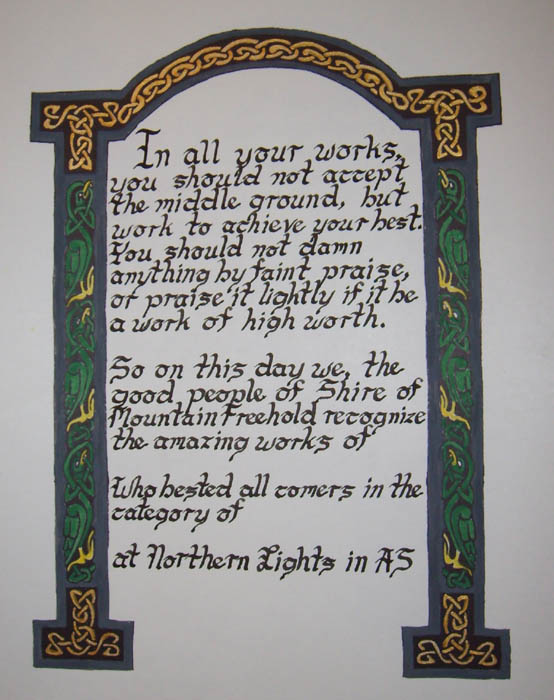 In all your works,
you should not accept
the middle ground, but
work to achieve your best.
You should not damn
anything by faint praise,
or praise it lightly if it be
a work of high worth.
So on this day we, the
good people of Shire of
Mountain Freehold recognize
the amazing works of
Who bested all comers in the
category of
at Northern Lights in AS